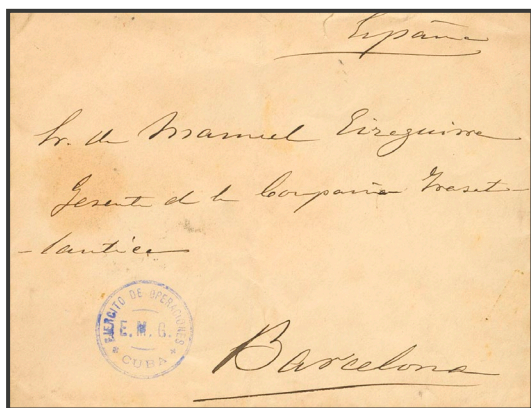 España
Sr. Dn Manuel Eizaguirre
Gerente de la Compañia Trasat-
-lantica
EJERCITO DE OPERACIONES
E.M.G.
CUBA
Barcelona